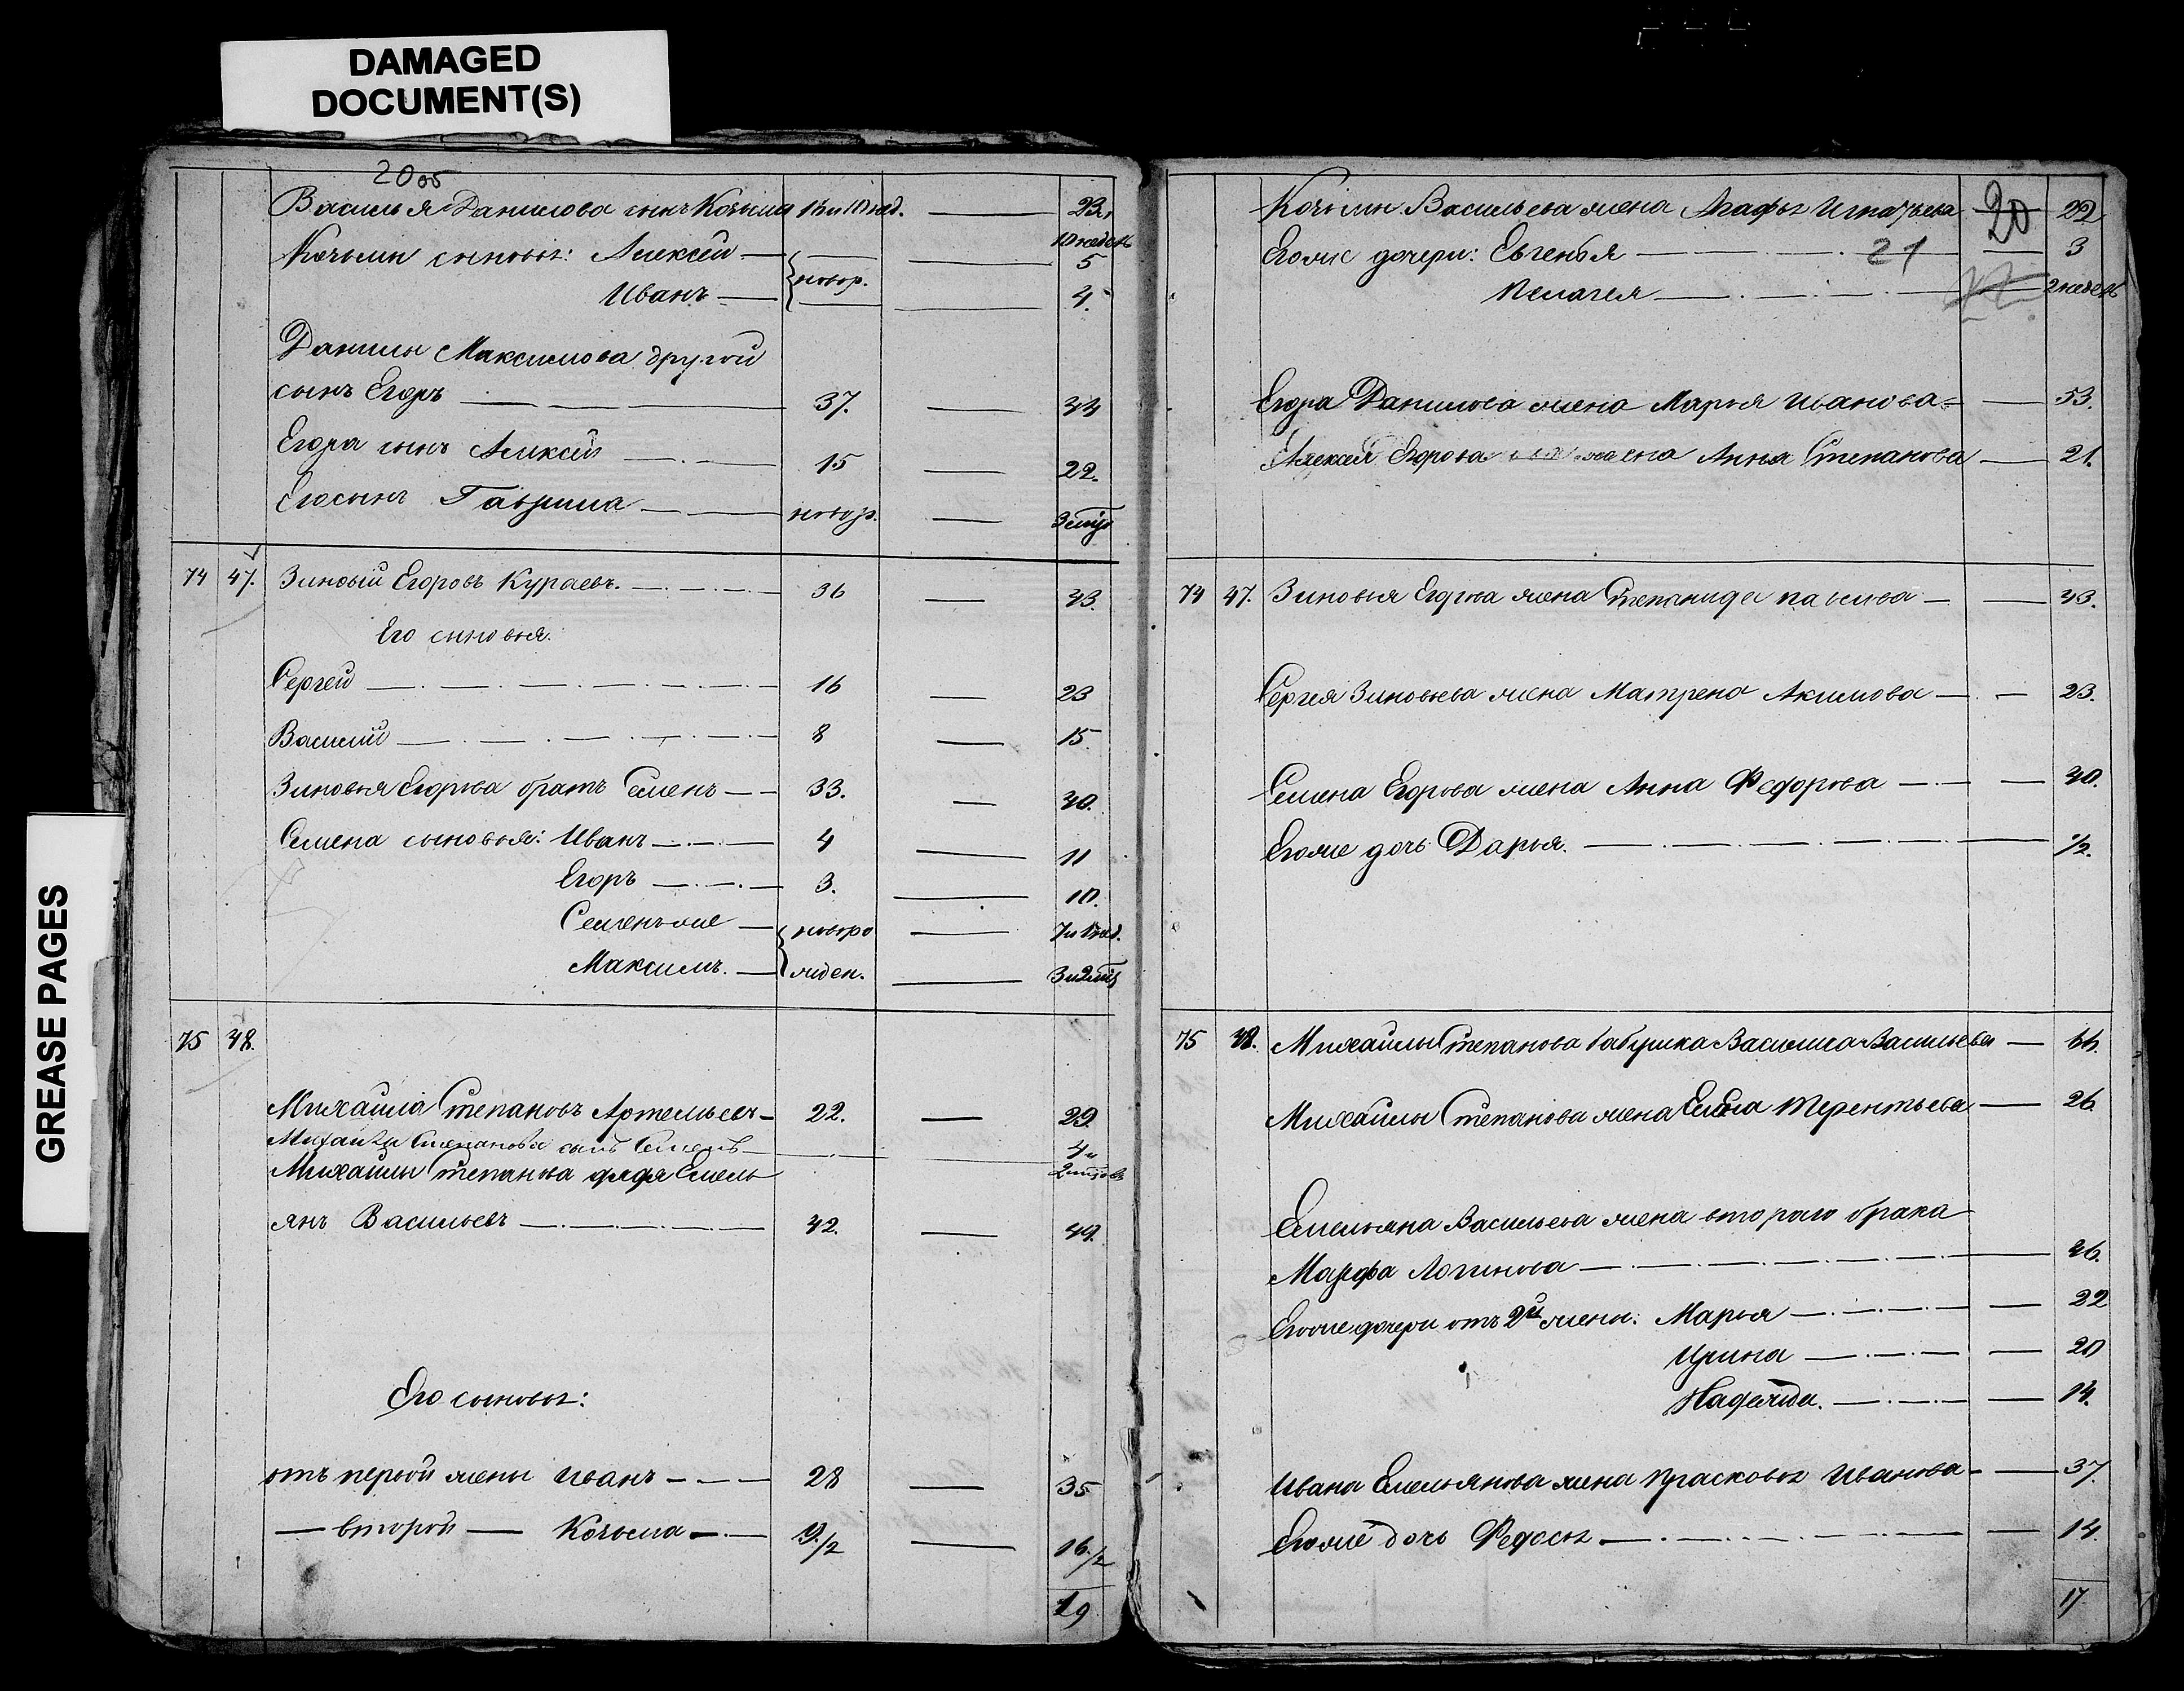 DAMAGED
DOCUMENT(S)
GREASE PAGES
20 об
Василья Данилова сынъ Козьма 15 и 10 нед. — 23 и 10 недель
Козьмы сыновья: Алексей — новор. — 5
Иванъ — — 4.
Данилы Максимова другой
сынъ Егоръ — 37. — 44
Егора сынъ Алексей — 15 — 22.
Его сынъ Гаврила — новор. — 3 мцъ
74 47. Зиновiй Егоровъ Кураевъ. — 36 — 43.
Его сыновья.
Сергей — 16 — 23
Василий — 8 — 15.
Зиновья Егорова братъ Семенъ — 33. — 40.
Семена сыновья: Иванъ — 4 — 11
Егоръ — 3. — 10.
Семенъ же — новоро — 7 и нед.
Максимъ. — жден. — 3 и 2 мцъ
75 48.
Михайла Степановъ Артемьевъ — 22. — 29.
Михайлы Степанова сынъ Семенъ — 4 и 2 мцовъ
Михайлы Степанова дядя Емель
янъ Васильевъ — 42. — 49.
Его сыновья:
отъ первой жены Иванъ — 28 — 35
— второй — Козьма — 9 1/2 — 16 1/2
19
Козьмы Васильева жена Агафья Игнатьева — 20 22
Его же дочери: Евгенья — 21 — 3
Пелагея — 2 недель
Егора Данилова жена Марья Иванова — 53.
Алексея Егорова жена Анна Степанова — 21.
74 47. Зиновья Егорова жена Степанида — 43.
Сергея Зиновьева жена Матрена Акимова — 23.
Семена Егорова жена Анна Федорова — 40.
Его же дочь Дарья. — 1/2.
75 48. Михайлы Степанова бабушка Василиса Васильева — 66.
Михайлы Степанова жена Елена Терентьева — 26.
Емельяна Васильева жена втораго брака
Марфа Логинова — 46.
Его же дочери отъ 2й жены: Марья — 22
Ирина — 20
Надежда. — 14.
Ивана Емельянова жена Прасковья Иванова — 37.
Его же дочь Федосья — 14.
17